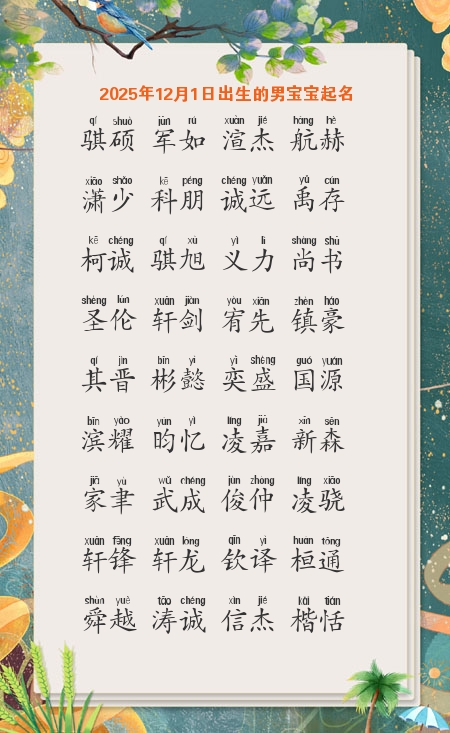 2025年12月1日出生的男宝宝起名
qí shuò jūn rú xuān jié háng hè
骐硕 军如 渲杰 航赫
xiāo shào kē péng chéng yuǎn yǔ cún
潇少 科朋 诚远 禹存
kē chéng qí xù yì lì shàng shū
柯诚 骐旭 义力 尚书
shèng lún xuān jiàn yòu xiān zhèn háo
圣伦 轩剑 宥先 镇豪
qí jìn bīn yì yì shèng guó yuán
其晋 彬懿 奕盛 国源
bīn yào yún yì líng jiā xīn sēn
滨耀 昀忆 凌嘉 新森
jiā yù wǔ chéng jùn zhòng líng xiāo
家聿 武成 俊仲 凌骁
xuān fēng xuān lóng qīn yì huán tōng
轩锋 轩龙 钦译 桓通
shùn yuè tāo chéng xìn jié kǎi tián
舜越 涛诚 信杰 楷恬